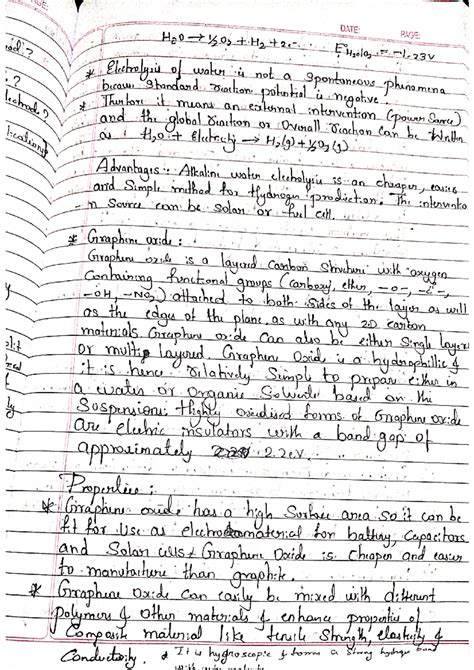 DATE: PAGE:
H2O → ½O2 + H2 + 2e- E°H2O|O2 = -1.23V
* Electrolysis of water is not a spontaneous phenomena
because standard reaction potential is negative.
* Therefore it means an external intervention (power source)
and the global reaction or overall reaction can be written
as H2O + Electricity → H2(g) + ½O2(g)
Advantages: Alkaline water electrolysis is an cheaper, easier
and simple method for Hydrogen production. The intervention
n source can be solar or fuel cell.
* Graphene oxide:
Graphene oxide is a layered carbon structure with oxygen
containing functional groups (carboxy, ether, -O-,
-OH, -NO2) attached to both sides of the layer as well
as the edges of the plane, as with any 2D carbon
materials Graphene oxide can also be either single layered
or multi layered. Graphene Oxide is a hydrophillic &
it is hence relatively simple to prepare either in
a water or organic solvents based on the
suspension. Highly oxidised forms of Graphene oxide
are electric insulators with a band gap of
approximately 2.2ev.
Properties:
* Graphene oxide has a high surface area so it can be
fit for use as electrode material for battery, capacitors
and Solar cells & Graphene Oxide is cheaper and easier
to manufacture than graphite.
* Grraphene Oxide can easily be mixed with different
polymers & other materials & enhance properties of
Composite material like tensile strength, elasticity &
Conductivity. * It is hygroscopic & forms a strong hydrogen bond